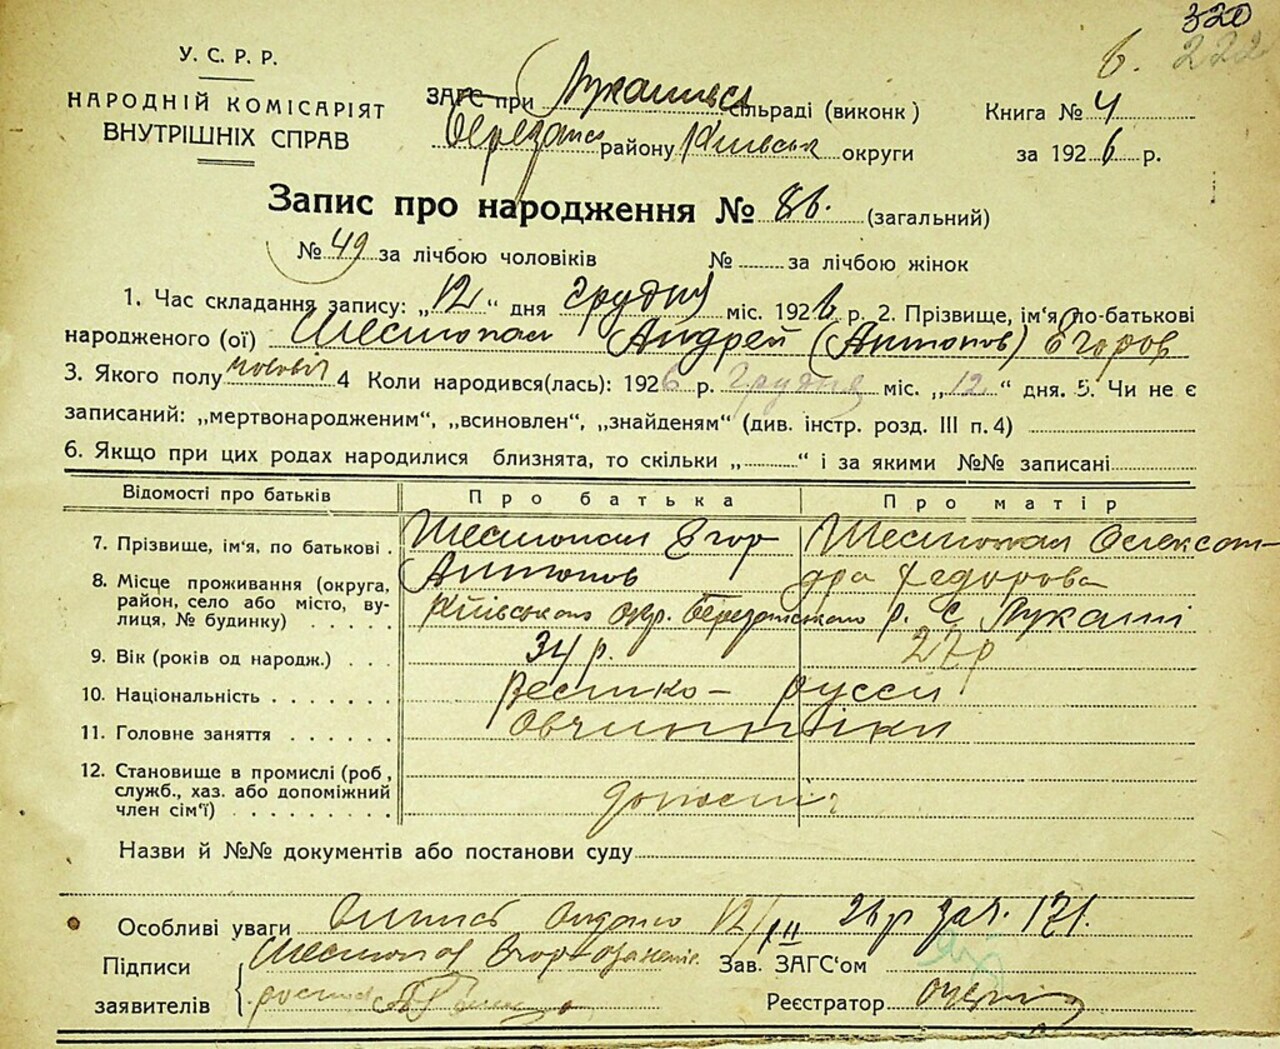 320
6. 222
У. С. Р. Р.
НАРОДНІЙ КОМІСАРІЯТ
ВНУТРІШНІХ СПРАВ
ЗАГС при Лукашівск сільраді (виконк)
Березанск району Київськ округи
Книга № 4
за 1926 р.
Запис про народження № 86. (загальний)
№ 49 за лічбою чоловіків № за лічбою жінок
1. Час складання запису: „12“ дня Грудня міс. 1926 р. 2. Прізвище, ім'я, по-батькові
народженого (ої) Шестопал Андрей (Антонов) Егоров
3. Якого полу чоловіч 4 Коли народився(лась): 1926 р. Грудня міс. „12“ дня. 5. Чи не є
записаний: „мертвонародженим“, „всиновлен“, „знайденям“ (див. інстр. розд. III п. 4)
6. Якщо при цих родах народилися близнята, то скільки „ “ і за якими №№ записані
Відомості про батьків Про батька Про матір
7. Прізвище, ім'я, по батькові. Шестопал Егор Шестопал Олексан-
Антонов дра Федорова
8. Місце проживання (округа,
район, село або місто, ву-
лиця, № будинку) Київського окр. Березанського р. с. Лукаші
9. Вік (років од народж.) 34 р. 27 р
10. Національність Велико-русси
11. Головне заняття Овчинніки
12. Становище в промислі (роб,
служб., хаз. або допоміжний
член сім'ї)
Назви й №№ документів або постанови суду
Особливі уваги Випись видано 12/XII 26 р за № 171.
Підписи
заявителів
Шестопал Егор
Зав. ЗАГС'ом
Реєстратор